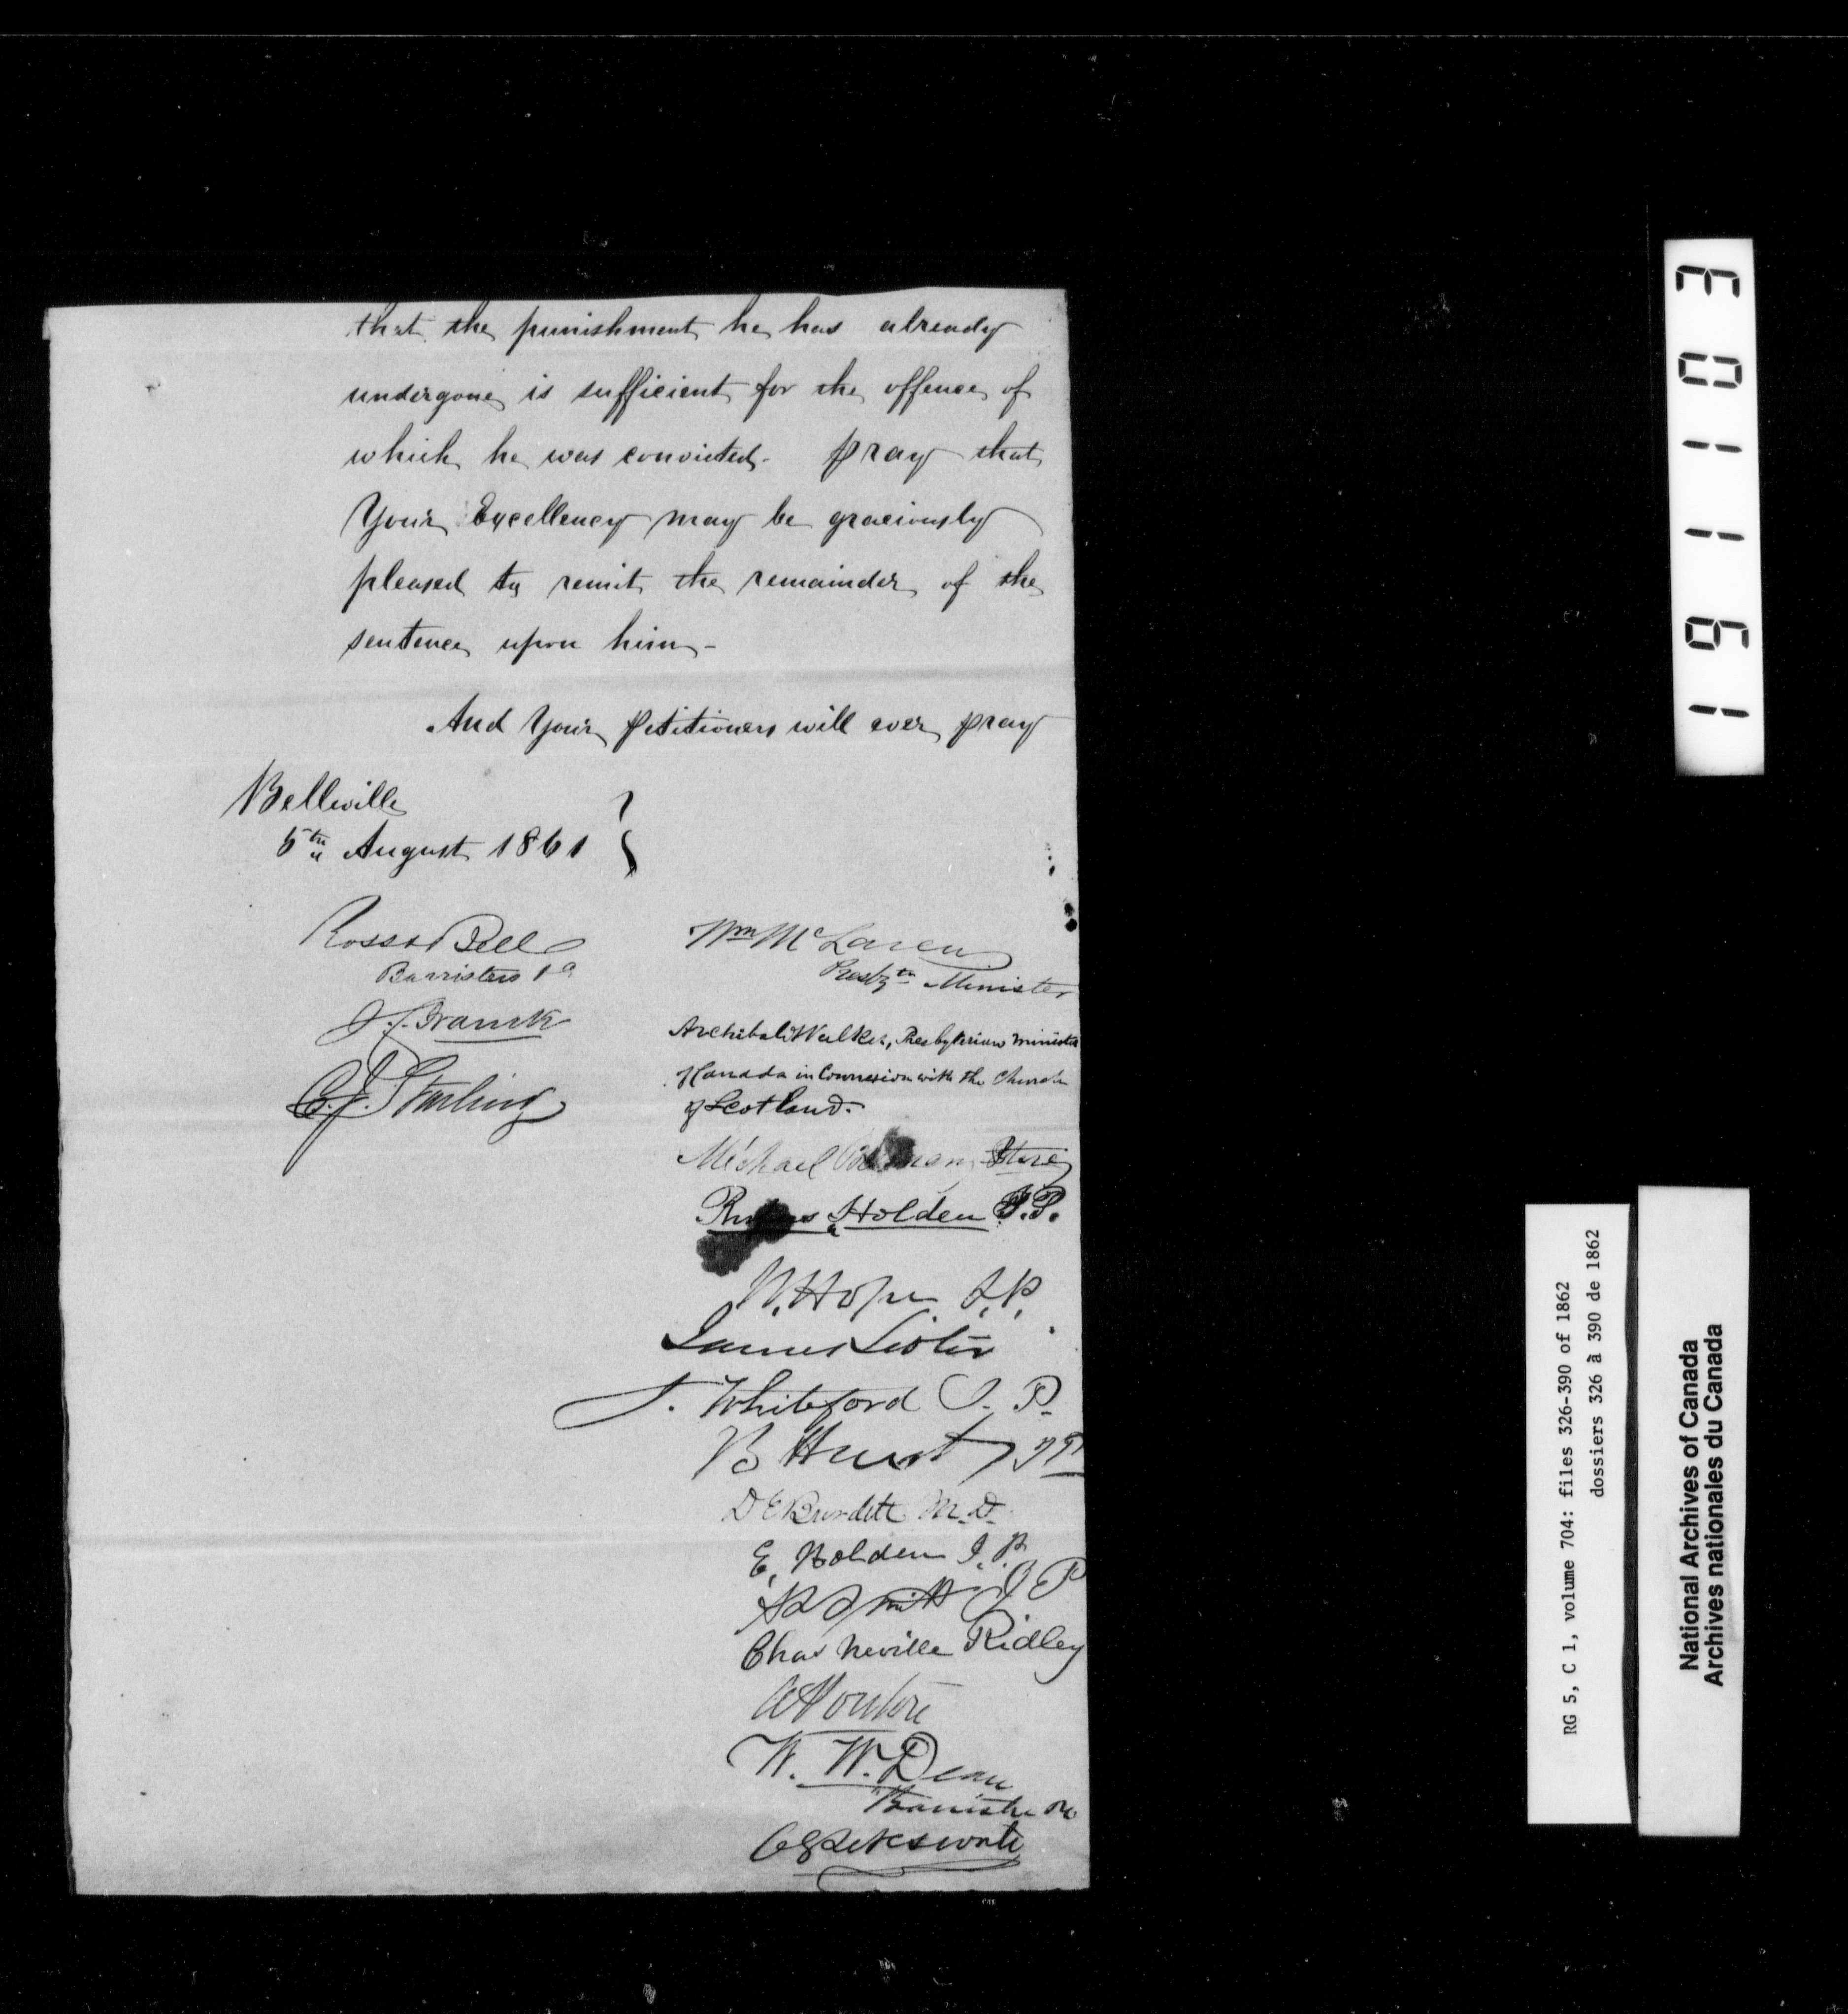 that the punishment he has already
undergone is sufficient for the offence of
which he was convicted. pray that
Your Excellency may be graciously
pleased to remit the remainder of the
sentence upon him -
And Your Petitioners will ever pray
Belleville
5th August 1861
Ross & Bell
Barristers
C. J. Starling
Wm McLaren
Presbytn Minister
Archibald Walker, Presbyterian minister
of Canada in Connexion with the Church
of Scotland.
Michael
Rufus Holden J.P.
W. Hope J.P.
James Lister
J. Whiteford J. P.
B Hurst
D E Burdett M.D.
E. Holden J.P.
Smith J P
Chas Neville Ridley
W. W. Dean
Barrister
19 1 1 103
RG 5, C 1, volume 704: files 326-390 of 1862
dossiers 326 à 390 de 1862
National Archives of Canada
Archives nationales du Canada